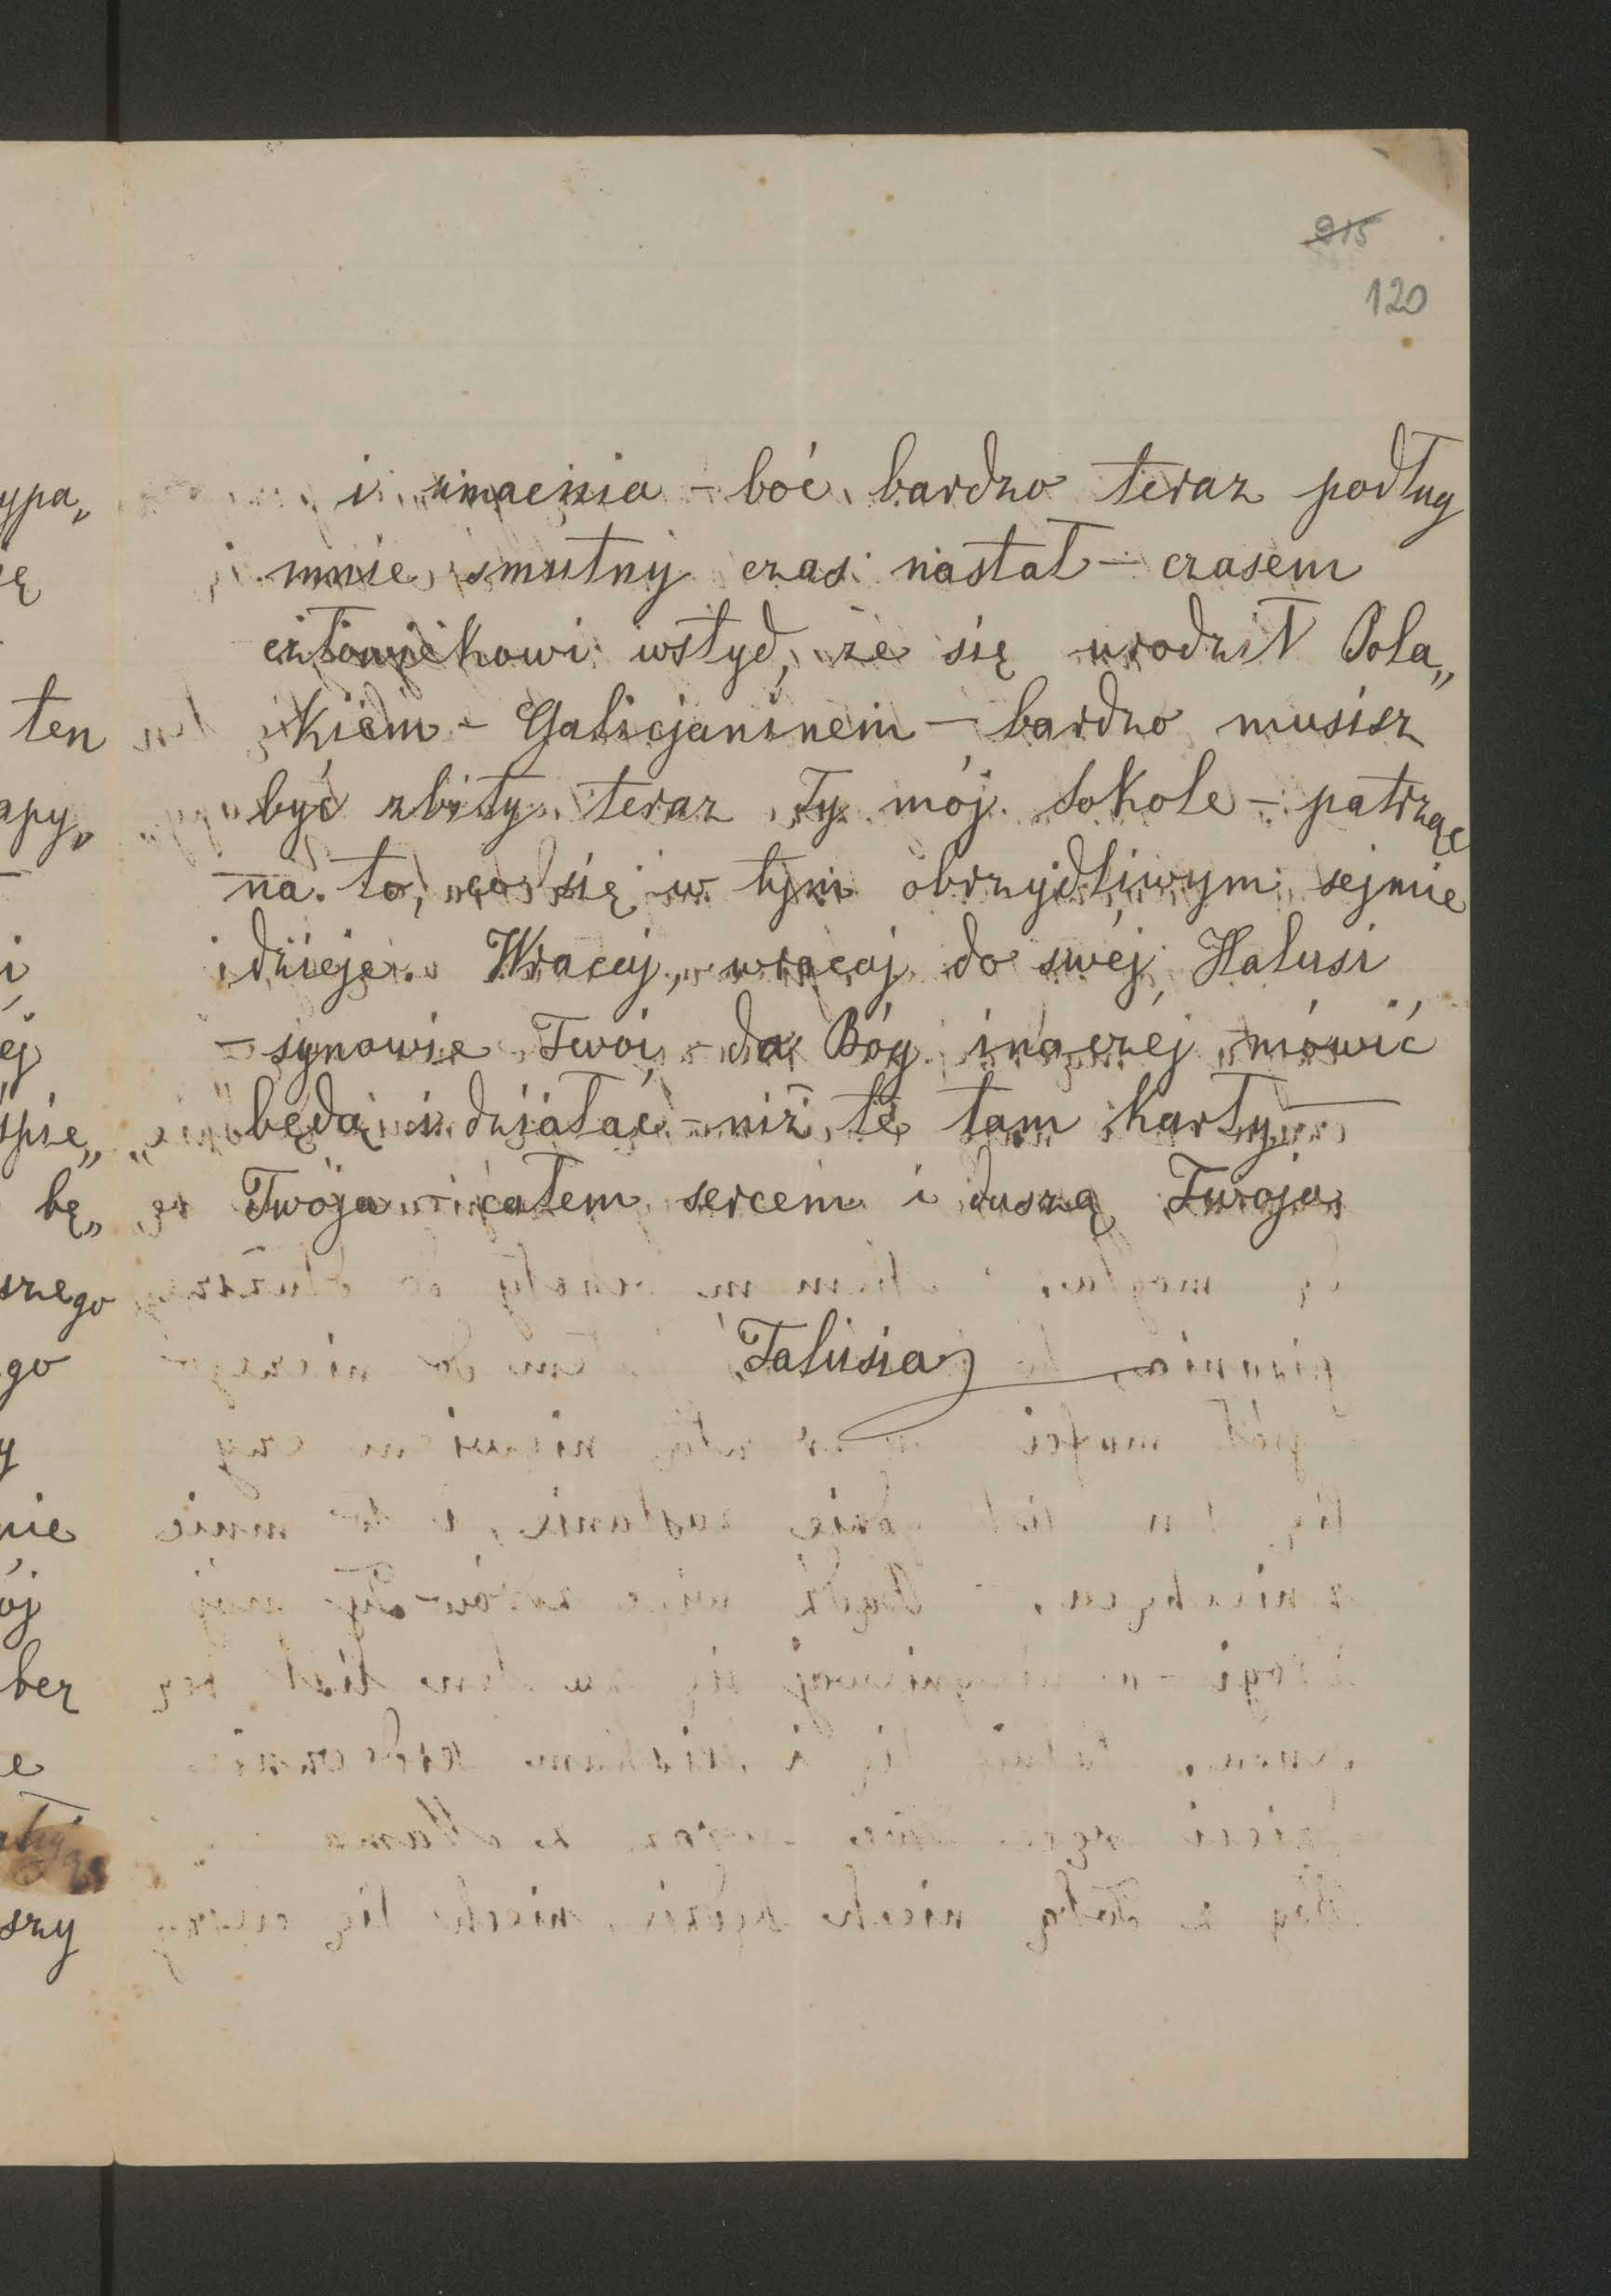 915
120
i zmacnia – boć bardzo teraz podług
mnie smutny czas nastał – czasem
człowiekowi wstyd, że się urodził Pola„
kiem – Galicjaninem – bardzo musisz
być zbity teraz Ty mój Sokole – patrząc
na to, co się w tym obrzydliwym sejmie
dzieje. Wracaj, wracaj do swej Halusi
– synowie Twoi, – da Bóg inaczej mówić
będą i działać – niż te tam karły —
Twoja – całem sercem i duszą Twoja
Talusia
ypa„
ię
ten
apy„
i
ej
śpie„
bę„
szego
go
y
nie
ój
bez
e
szy